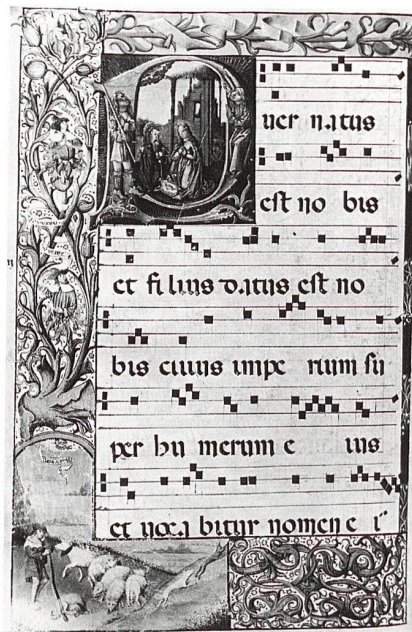 Puer natus
est no bis
et fi lius datus est no
bis cuius impe rium su
per hu merum e ius
et voca bitur nomen e i